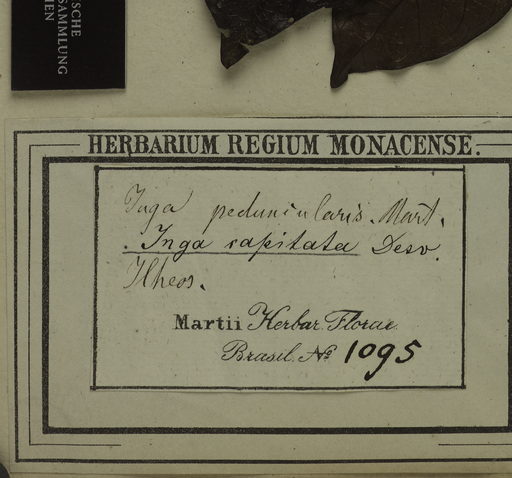 SCHE
SAMMLUNG
EN
HERBARIUM REGIUM MONACENSE.
Inga peduncularis. Mart.
Inga capitata Desv.
Ilheos.
Martii Herbar. Florae
Brasil. No 1095